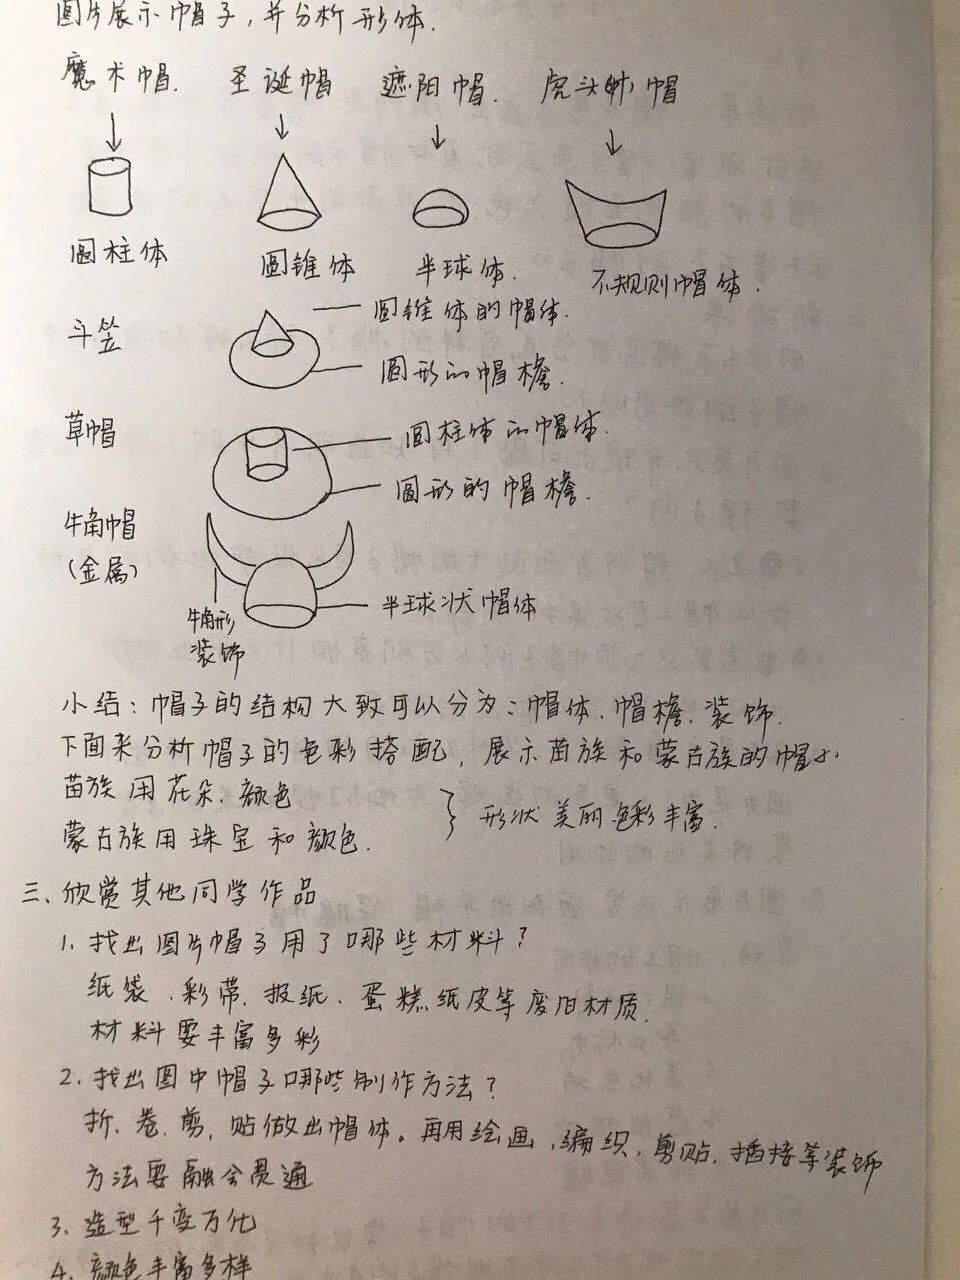 图片展示帽子，并分析形体.
魔术帽. 圣诞帽 遮阳帽. 虎头帽
圆柱体 圆锥体 半球体. 不规则帽体.
斗笠 圆锥体的帽体.
圆形的帽檐.
草帽 圆柱体的帽体.
圆形的帽檐.
牛角帽
(金属)
半球状帽体
牛角形
装饰
小结：帽子的结构大致可以分为：帽体、帽檐、装饰.
下面来分析帽子的色彩搭配，展示苗族和蒙古族的帽子
苗族用花朵、颜色
蒙古族用珠宝和颜色.
形状美丽色彩丰富.
三、欣赏其他同学作品
1. 找出图片帽子用了哪些材料？
纸袋、彩带、报纸、蛋糕纸皮等废旧材质.
材料要丰富多彩
2. 找出图中帽子哪些制作方法？
折、卷、剪，贴做出帽体。再用绘画、编织，剪贴，插接等装饰
方法要融会贯通
3. 造型千变万化
4. 颜色丰富多样